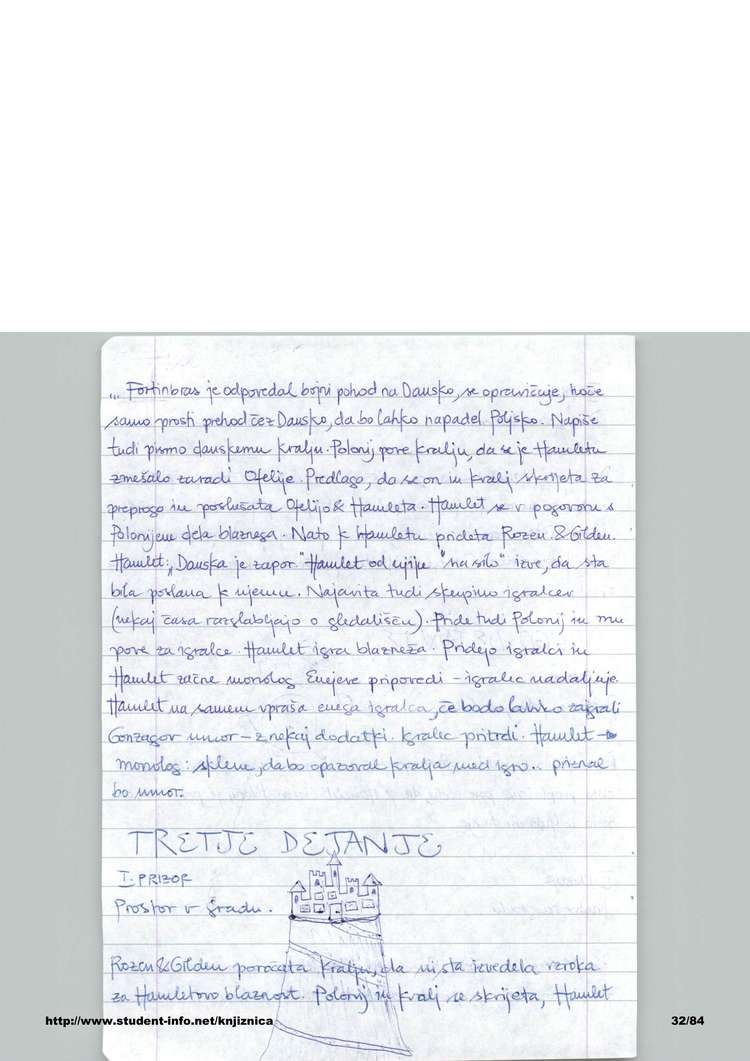 ... Fortinbras je odpovedal bojni pohod na Dansko, se opravičuje, hoče
samo prosti prehod čez Dansko, da bo lahko napadel Poljsko. Napiše
tudi pismo danskemu kralju. Polonij pove kralju, da se je Hamletu
zmešalo zaradi Ofelije. Predlaga, da se on in kralj skrijeta za
preprogo in poslušata Ofelijo & Hamleta. Hamlet se v pogovoru s
Polonijem dela blaznega. Nato k Hamletu prideta Rozen. & Gilden.
Hamlet: „Danska je zapor" Hamlet od njiju "na silo" izve, da sta
bila poslana k njemu. Najavita tudi skupino igralcev
(nekaj časa razglabljajo o gledališču). Pride tudi Polonij in mu
pove za igralce. Hamlet igra blazneža. Pridejo igralci in
Hamlet začne monolog Enejeve pripovedi – igralec nadaljuje.
Hamlet na samem vpraša enega igralca, če bodo lahko zaigrali
Gonzagov umor – z nekaj dodatki. Igralec pritrdi. Hamlet →
monolog: sklene, da bo opazoval kralja med igro.. priznal
bo umor.
TRETJE DEJANJE
I. PRIZOR
Prostor v gradu.
Rozen & Gilden poročata kralju, da nista izvedela vzroka
za Hamletovo blaznost. Polonij in kralj se skrijeta, Hamlet
http://www.student-info.net/knjiznica 32/84